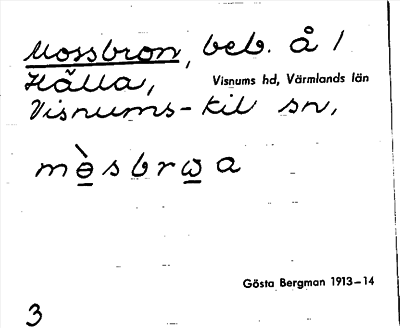 Mossbron, beb. å /
Hälla, Visnums hd, Värmlands län
Visnums-kil sn,
mɵ̀sbrꞷa
Gösta Bergman 1913–14
3